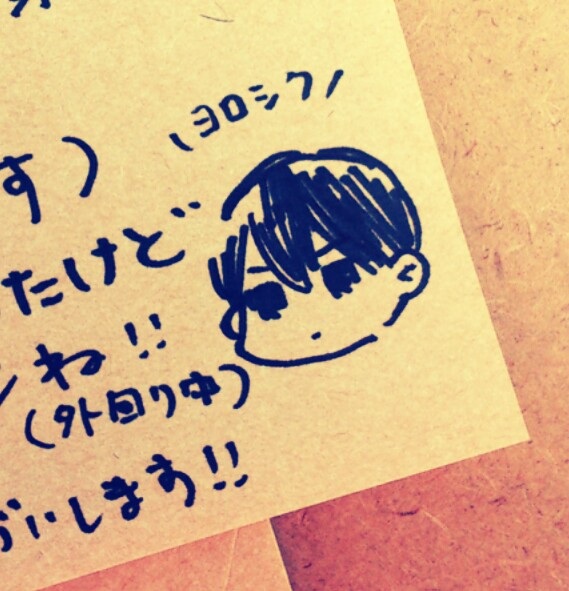 ヨロシク
す)
たけど
ね!!
(外回り中)
いします!!